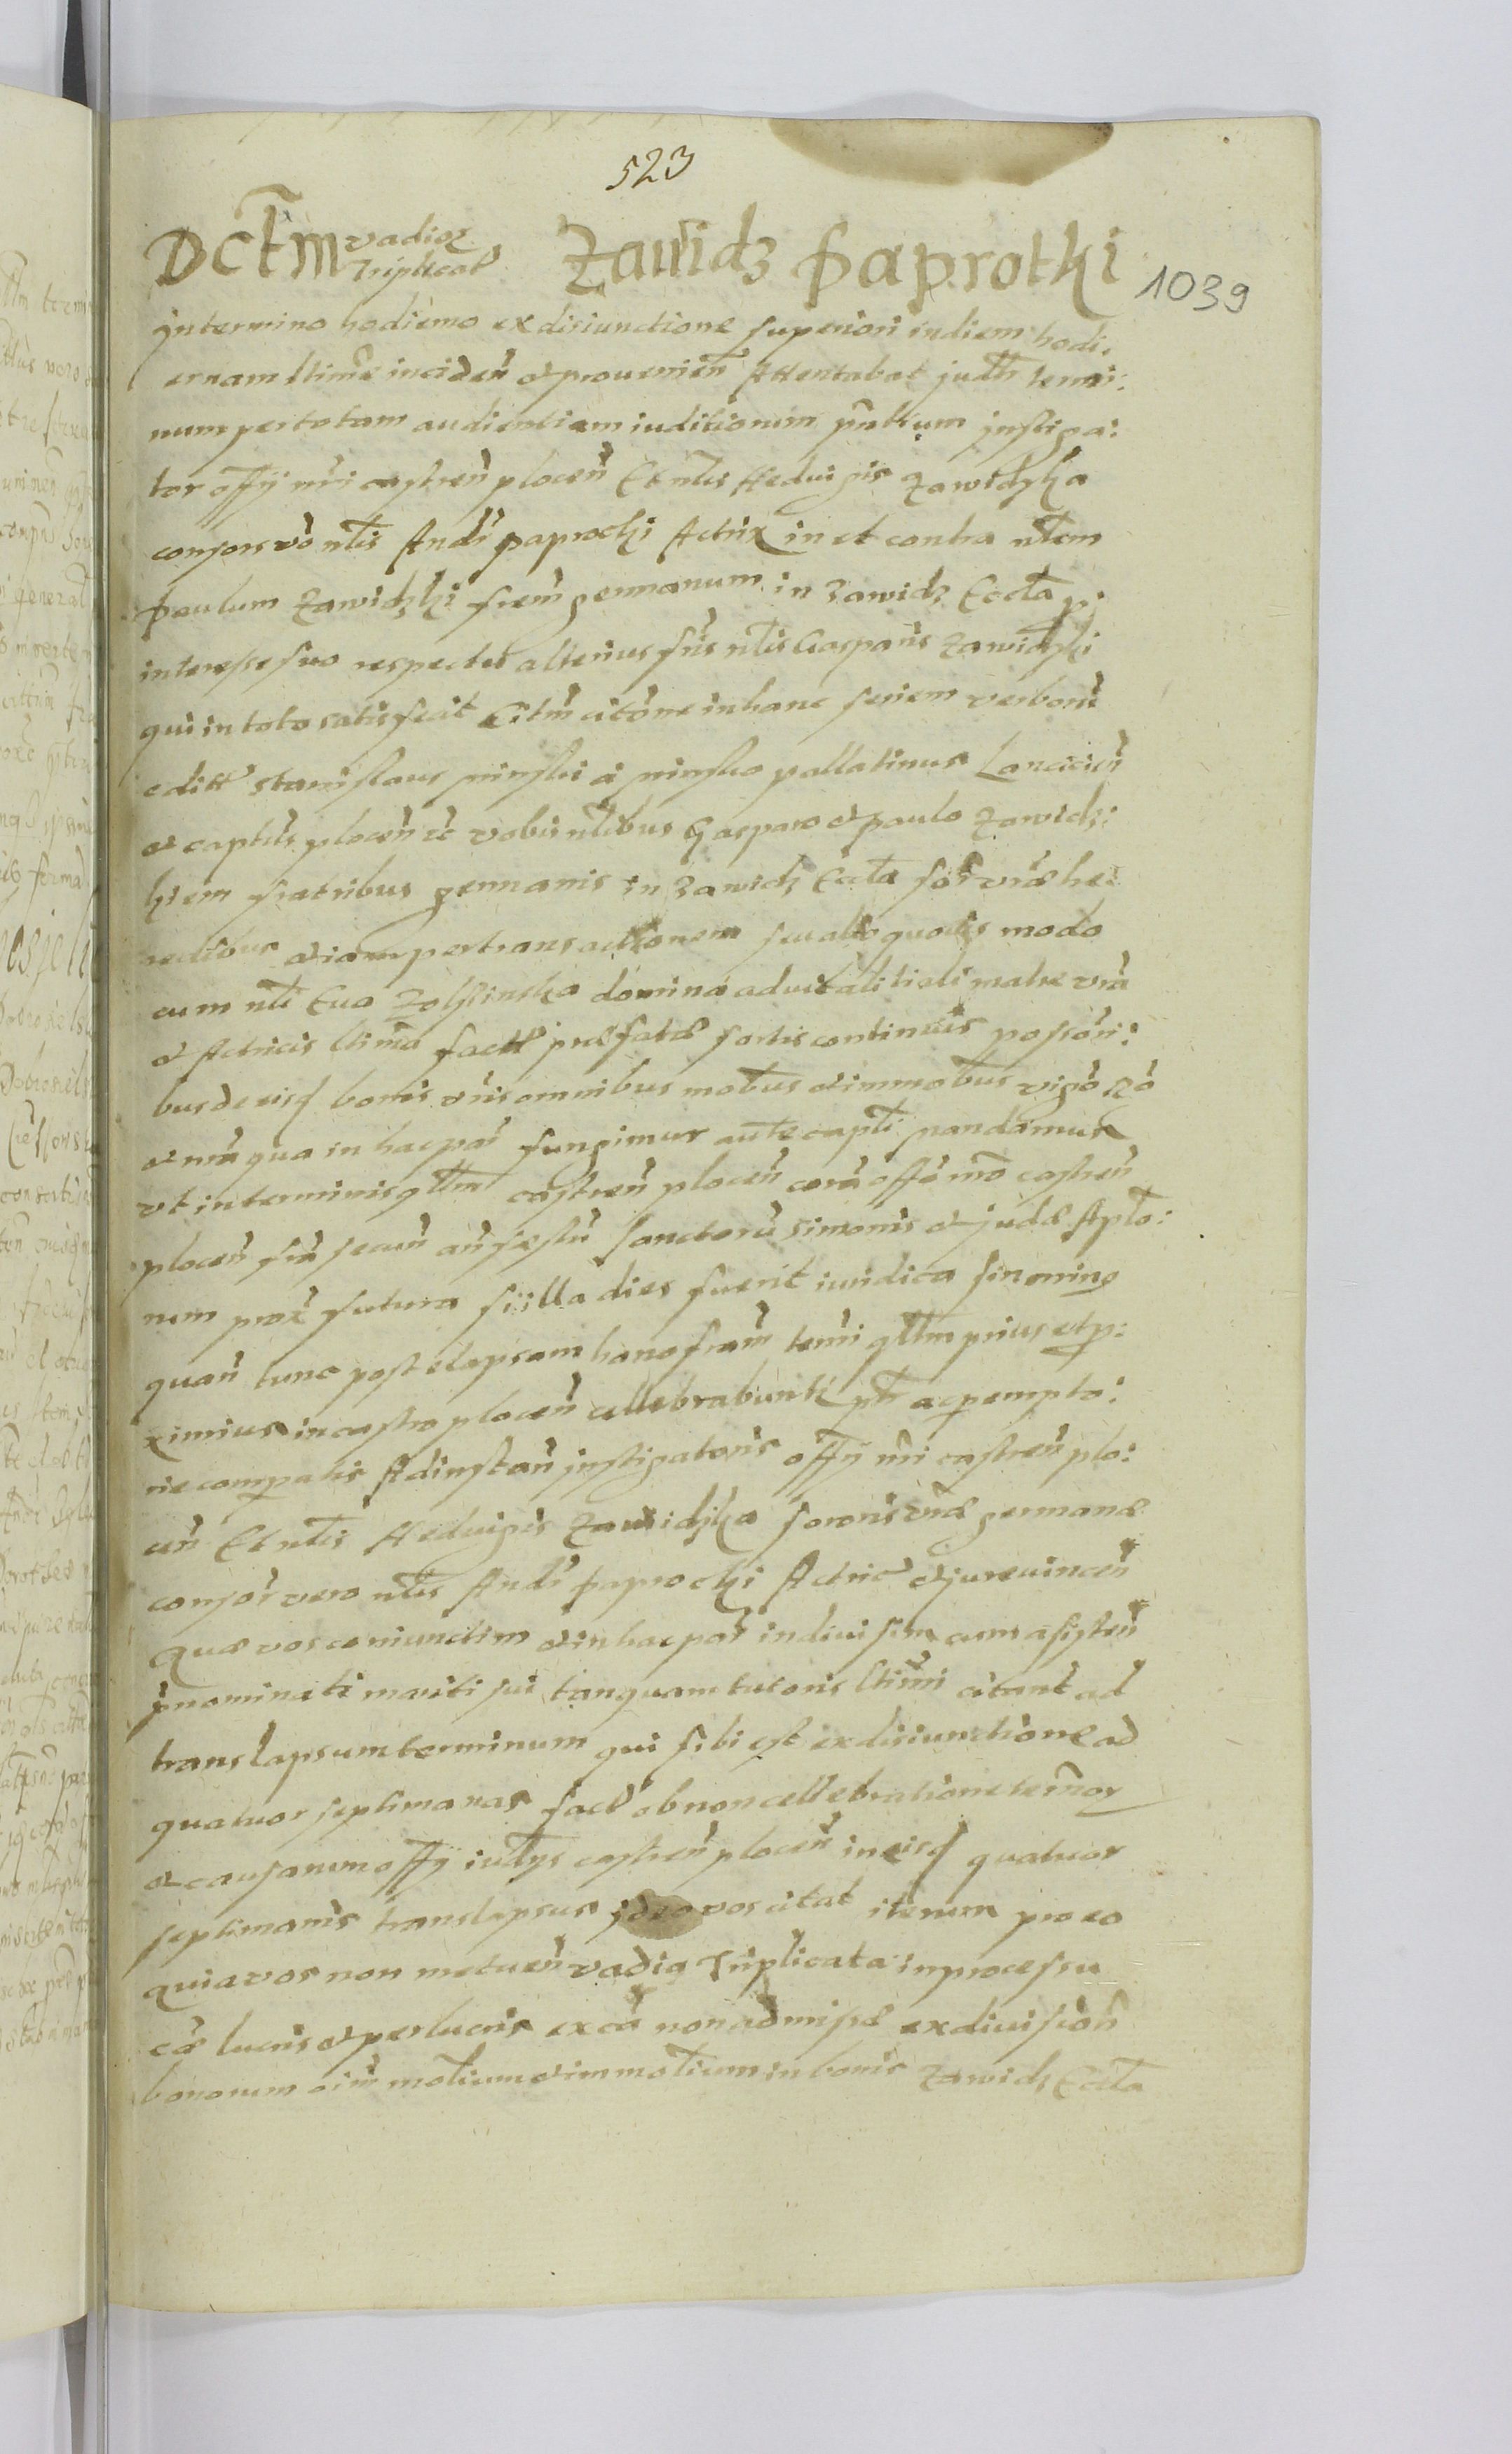 523
Dctm vadior Triplicat Zawidz Paprotki 1039
In termino hodierno ex disiunctione superiori in diem hodi:
ernam ltime inciden et prouenien Attentabat judtr termi:
num per totam audientiam iuditiorum pntium instiga:
tor offy nri castren plocen Et nlis Hedvigis Zawidzka
consors vo nlis Andr Paprocki Actrix in et contra nlem
Paulum Zawidzki frem germanum in Zawidz Eccta p:
interesse suo respectu alterius fris nlis Gasparis Zawidzki
qui in toto satisfecit Citm citone in hanc seriem verboru
editt Stanislaus minski a minsko pallatinus Lancicien
et captls plocen etc vobis nlibus Gasparo et Paulo Zawidz:
kiem fratribus germanis in Zawidz Eccta sor vræ hæ:
redibus et iam per transactionem seu alio quovis modo
cum nli Eua Zolscinska domina aduitalitiali matre vra
et Actricis ltima factt præfatæ sortis continuis possori:
bus de eisq bonis vris omnibus mobus et immobus vigo Ro
et nra qua in hac par fungimur autte captli mandamus
vt in terminis qllm castren plocen cora offo nro castren
plocen fra secun an festu Sanctoru Simonis et Judæ Aplo:
rum prox futura si illa dies fuerit iuridica sin oming
quan tunc post elapsam hanc fram termi qllm prius et p:
ximius in castro plocen cellebrabuntt ptr ac pempto:
rie compatis Ad instan instigatoris offy nri castren plo:
cen Et nlis Hedvigis Zawidzka sororis vræ germanæ
consor vero nlis Andr Paprocki Actric et jurevincen
quæ vos coniunctim et in hac par indiuisim cum asisten
pnominati mariti sui tanquam tutoris ltimi citant ad
translapsum terminum qui sibi est ex disiunctione ad
quatuor septimanas fact ob non cellebratione termor
et causarum offy iudys castren plocen in eisq quatuor
septimanis translapsus ideo vos citat iterum pro eo
quia vos non metuen vadia Triplicata in processu
cæ lucris et perlucris ex ca non admissæ ex diuision
bonorum oim motium et immotium in bonis Zawidz Eccta